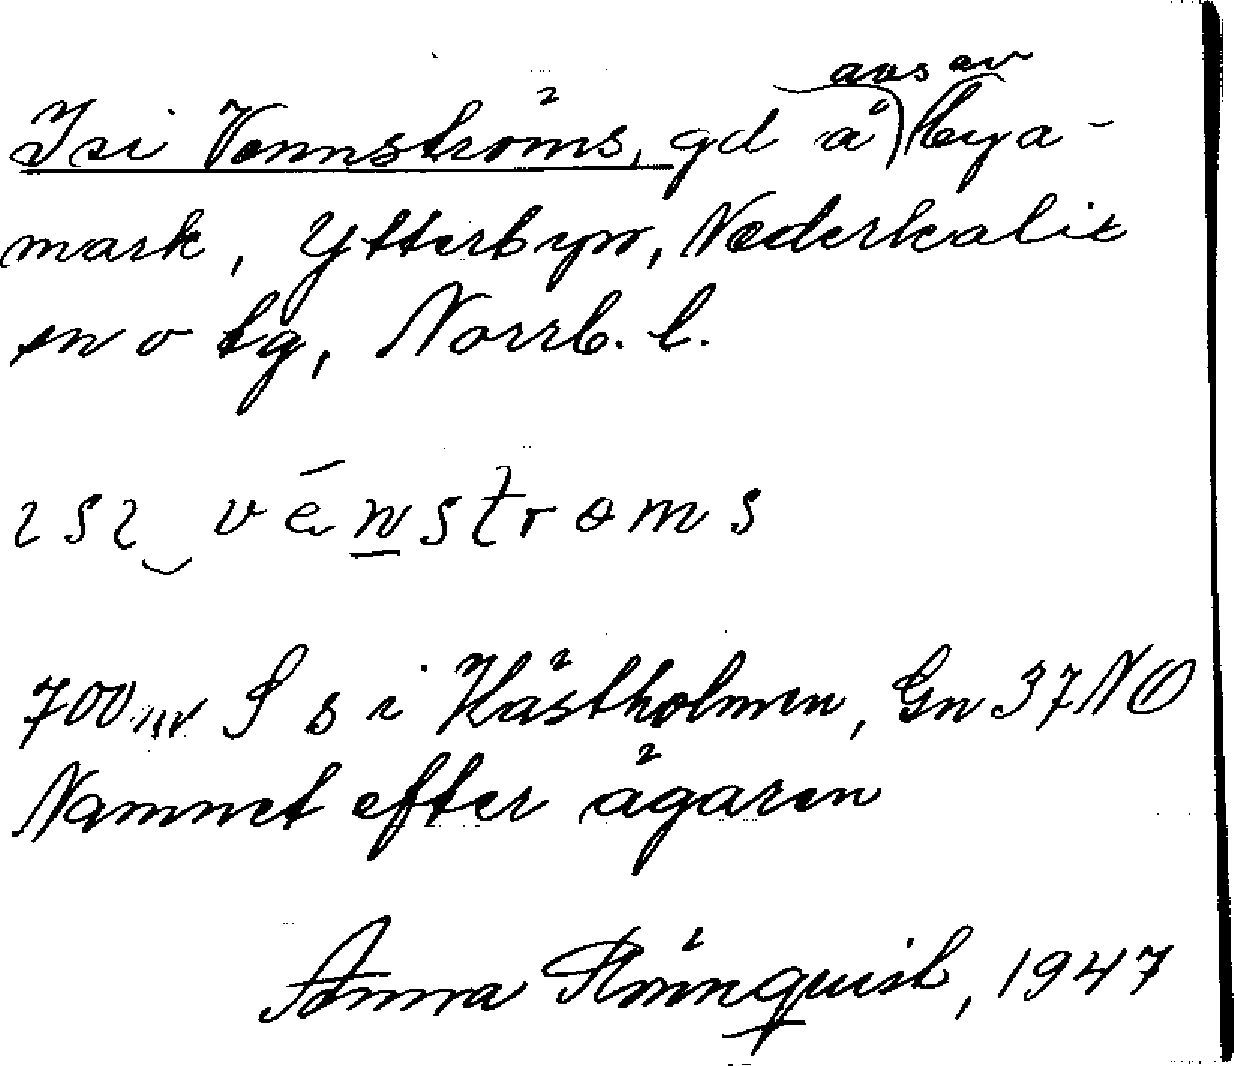 Isi Vennströms, gd å avs av bya-
mark, Ytterbyn, Nederkalix
sn o tg, Norrb. l.
ısı vénstrøms
700 m S s i Hästholmen, Gn 37 NO
Namnet efter ägaren
Anna 1947